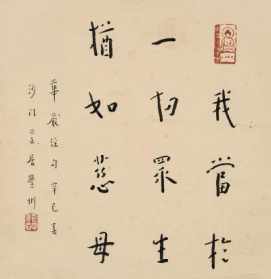 我當於
一切眾生
猶如慈母
華嚴經句辛巳春
沙門